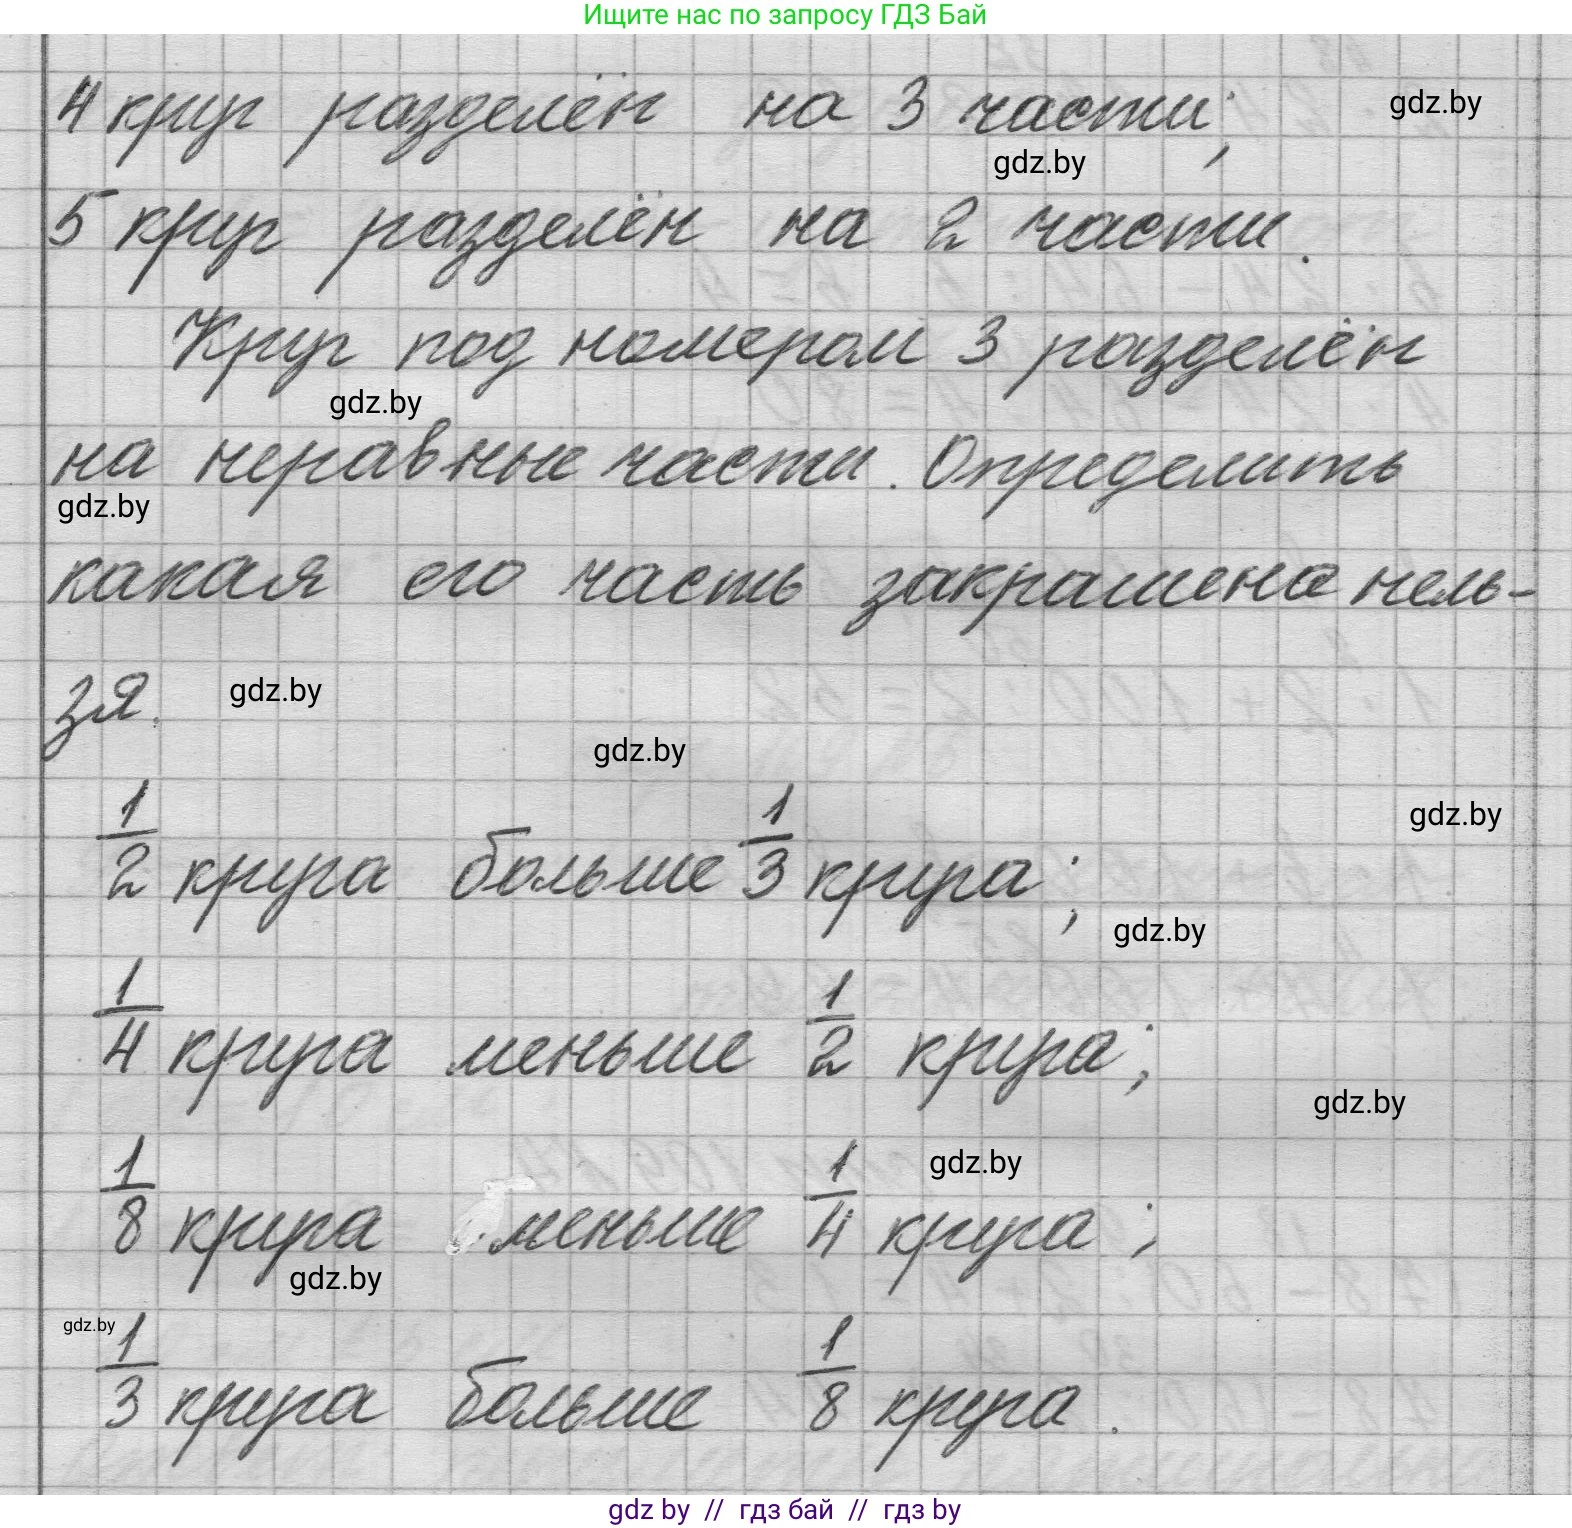 Ищите нас по запросу ГДЗ Бай
4 круг разделён на 3 части;
gdz.by
gdz.by
5 круг разделён на 2 части.
Круг под номером 3 разделён
gdz.by
на неравные части. Определить
gdz.by
какая его часть закрашена нель-
зя.
gdz.by
gdz.by
gdz.by
1/2 круга больше 1/3 круга;
gdz.by
1/4 круга меньше 1/2 круга;
gdz.by
gdz.by
1/8 круга меньше 1/4 круга;
gdz.by
gdz.by
1/3 круга больше 1/8 круга.
gdz by // гдз бай // гдз by